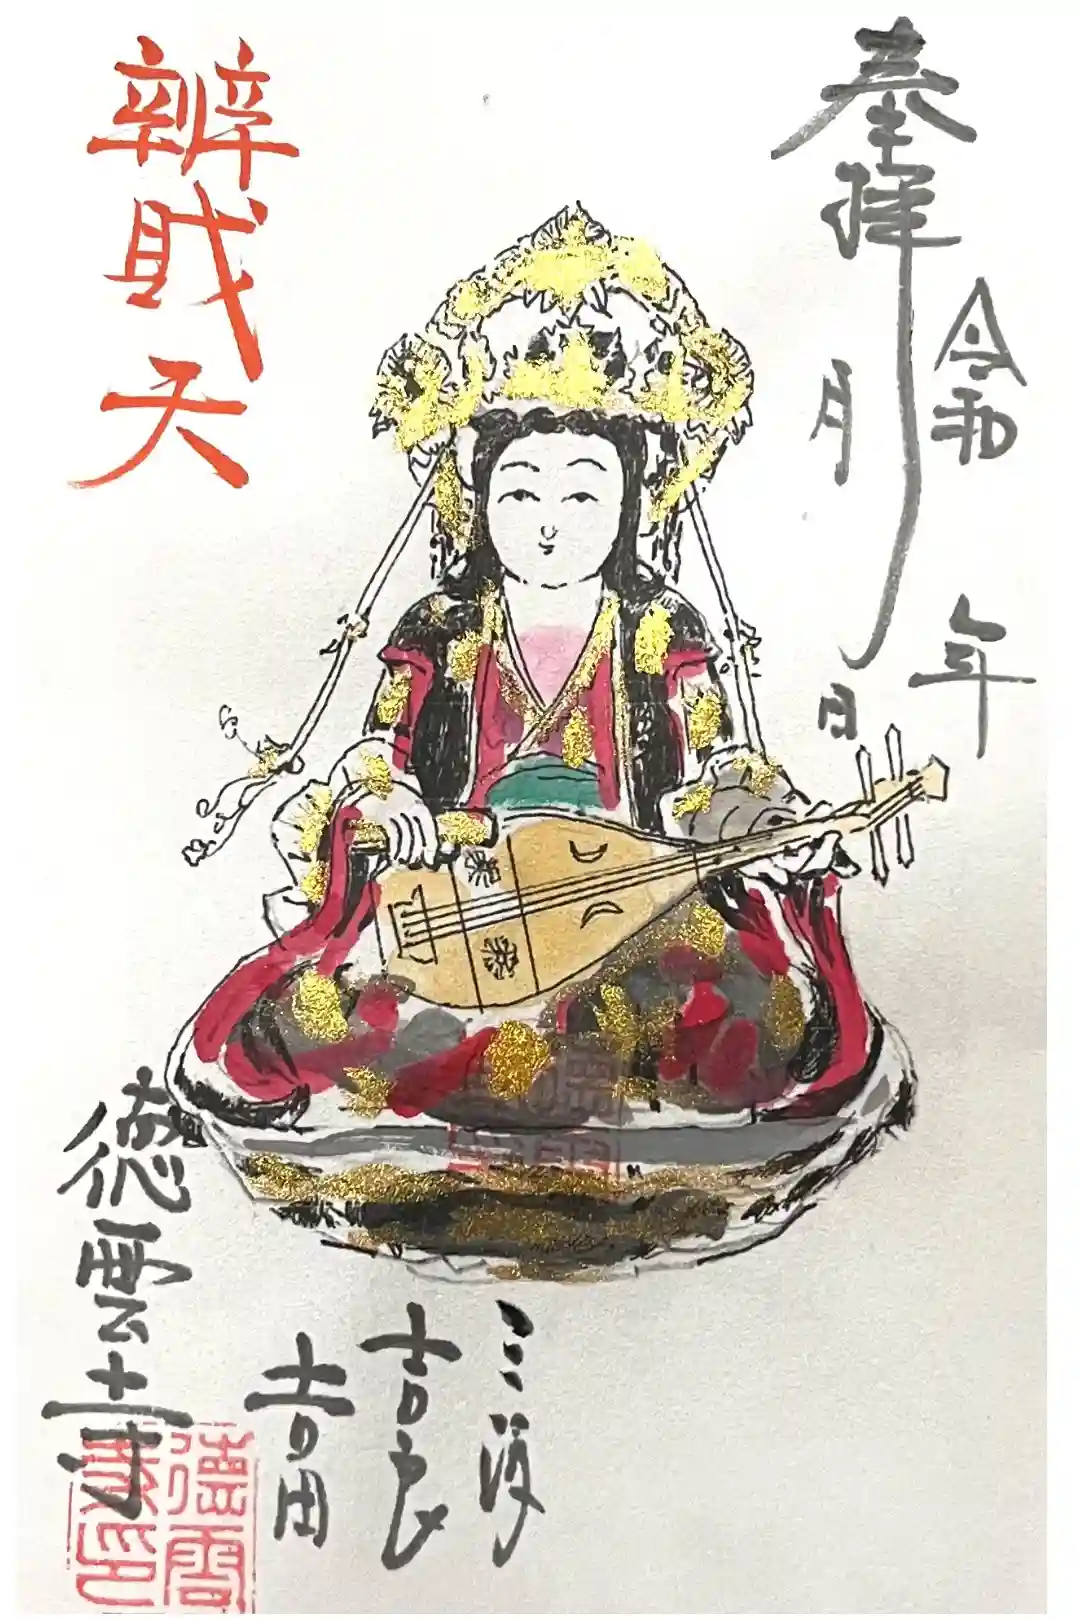 奉拝
令和 年
月 日
辨財天
三河
吉良
吉田
徳雲寺
徳雲
寺印